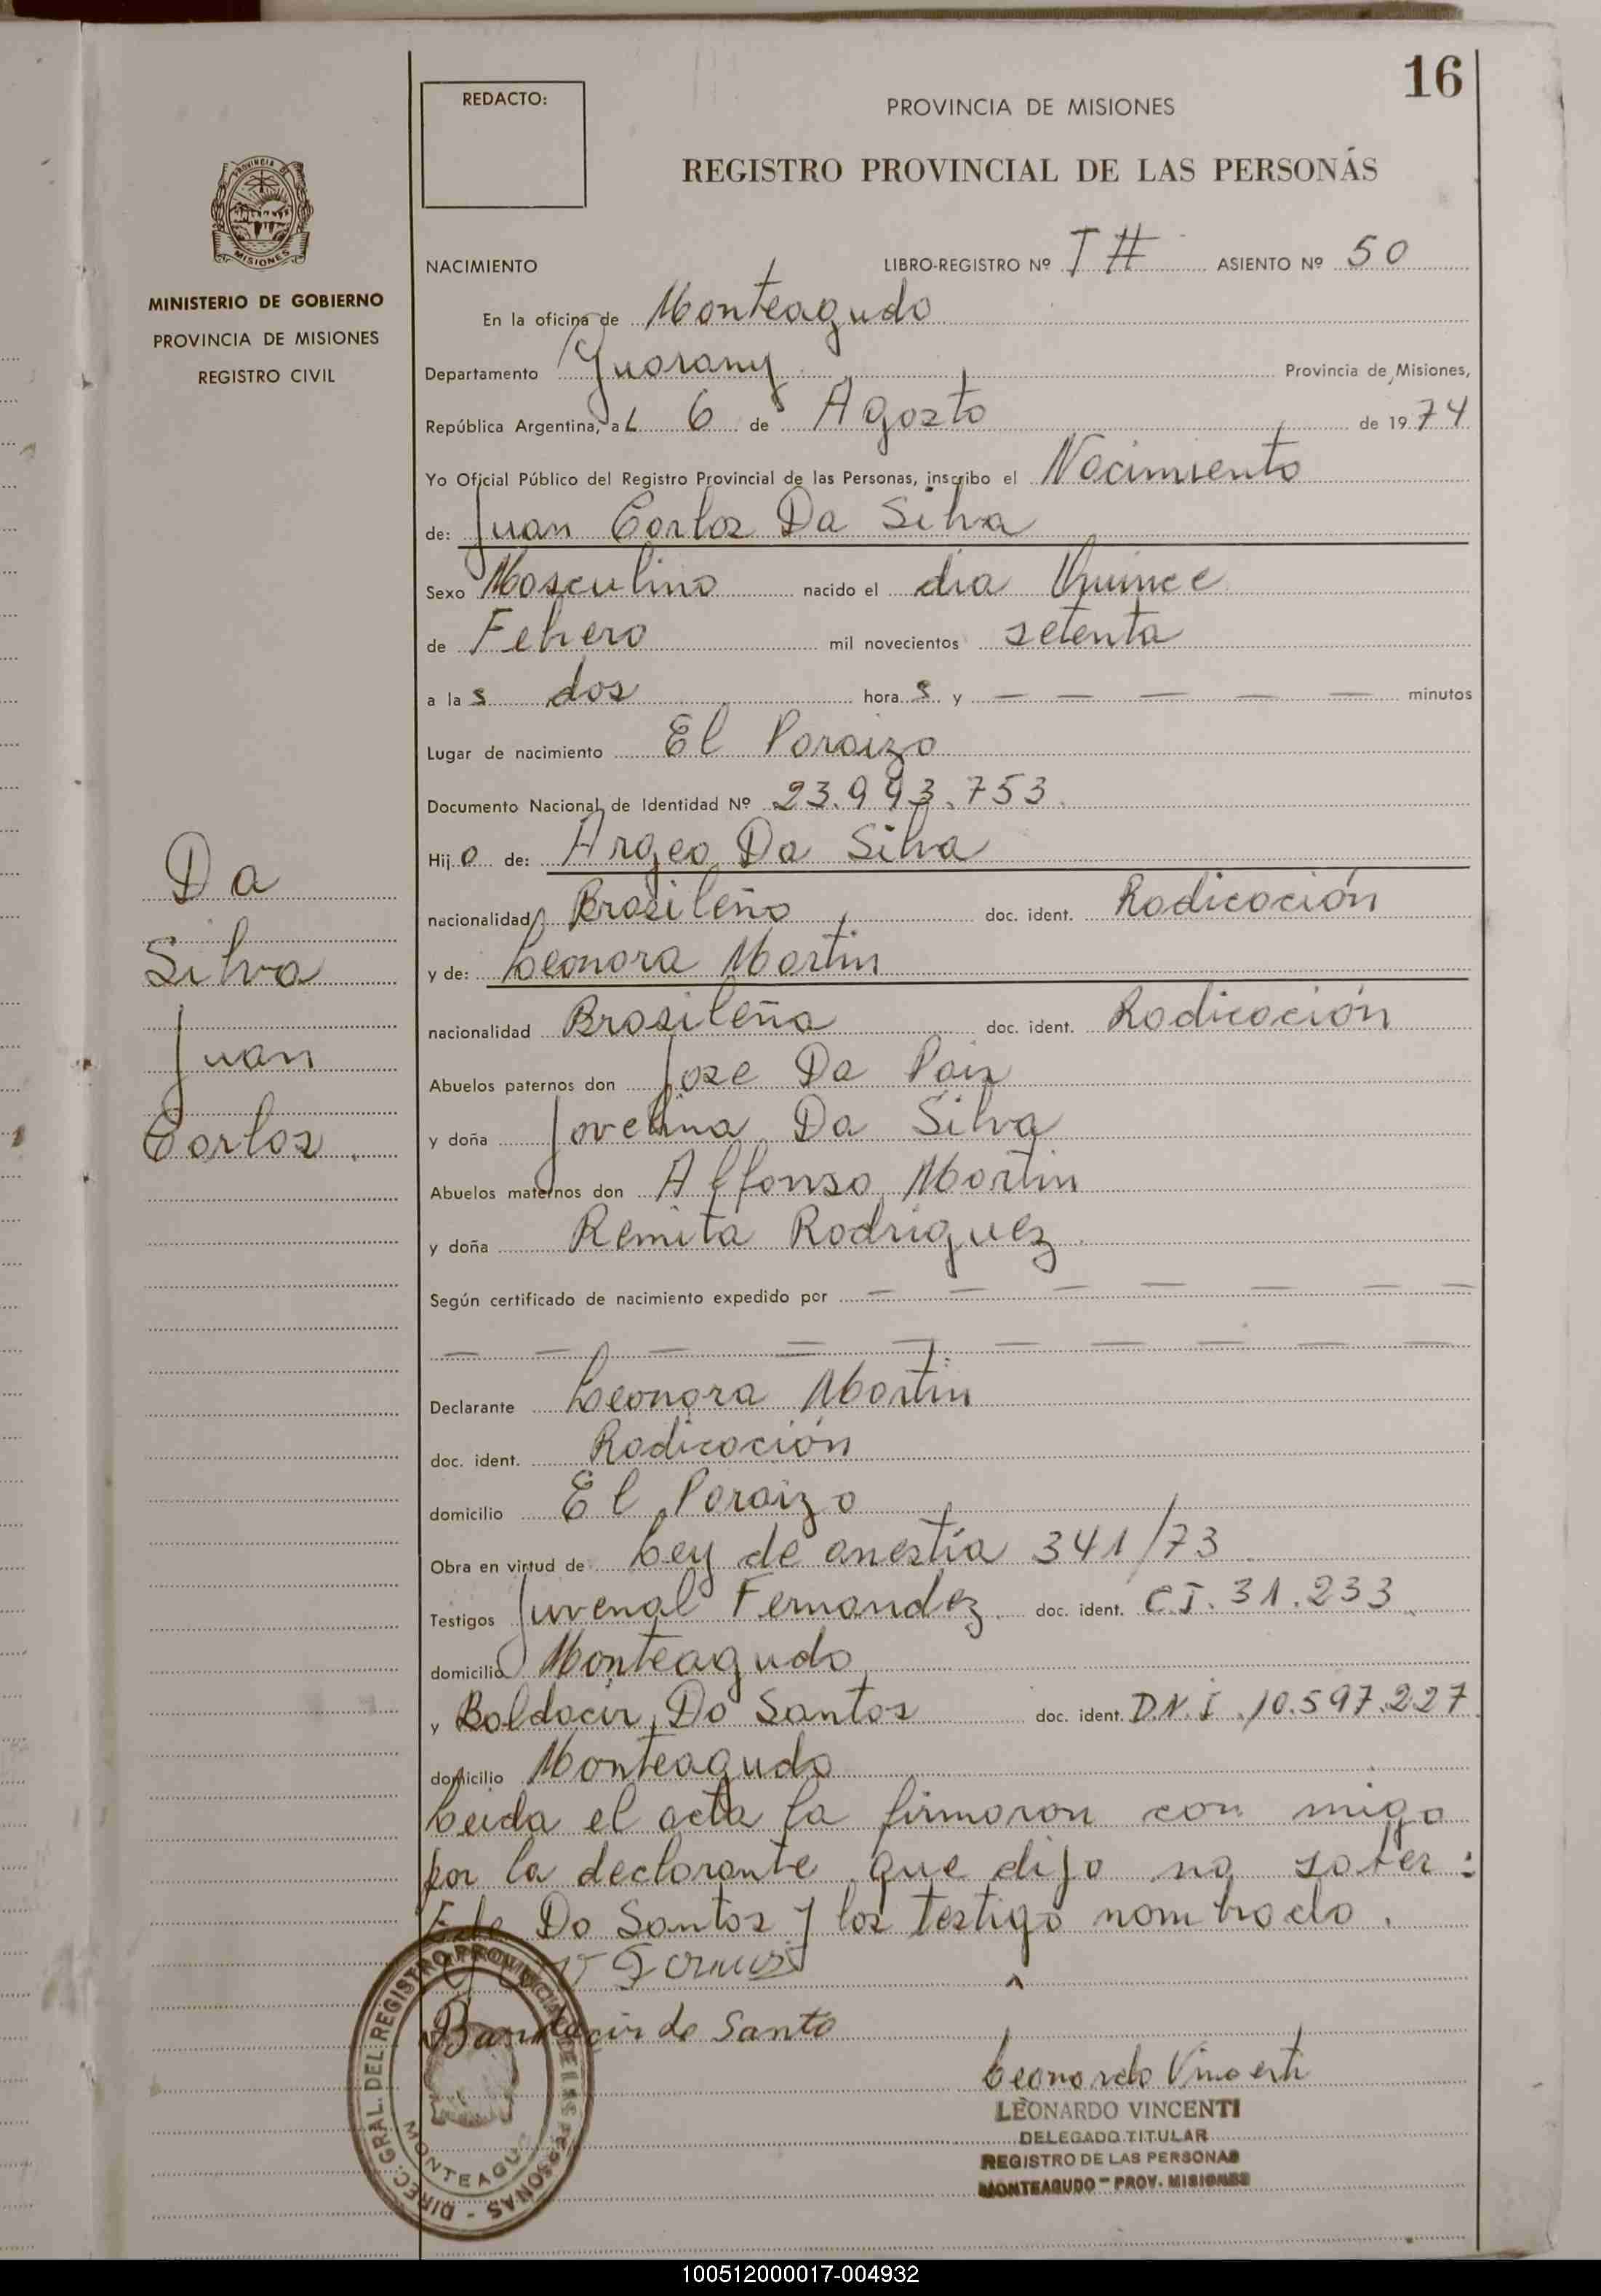 16
REDACTO:
PROVINCIA DE MISIONES
REGISTRO PROVINCIAL DE LAS PERSONAS
PROVINCIA
MISIONES
MINISTERIO DE GOBIERNO
PROVINCIA DE MISIONES
REGISTRO CIVIL
NACIMIENTO LIBRO-REGISTRO Nº T# ASIENTO Nº 50
En la oficina de Monteagudo
Departamento Guarany Provincia de Misiones,
República Argentina, a L 6 de Agosto de 1974
Yo Oficial Público del Registro Provincial de las Personas, inscribo el Nacimiento
de: Juan Carlos Da Silva
Sexo Masculino nacido el dia Quince
de Febrero mil novecientos setenta
a las dos horas y — — — — — minutos
Lugar de nacimiento El Paraizo
Documento Nacional de Identidad Nº 23.993.753
Hijo de: Argeo Da Silva
nacionalidad Brasileño doc. ident. Radicación
y de: Leonora Martin
nacionalidad Brasileña doc. ident. Radicación
Abuelos paternos don Jose Da Paiz
y doña Jovelina Da Silva
Abuelos maternos don Alfonso Martin
y doña Remita Rodriguez
Según certificado de nacimiento expedido por — — — — — — —
— — — — — — — — — —
Declarante Leonora Martin
doc. ident. Radicación
domicilio El Paraizo
Obra en virtud de Ley de anestía 341/73
Testigos Juvenal Fernandez doc. ident. C.I. 31.233
domicilio Monteagudo
y Baldacir Do Santos doc. ident. D.N.I. 10.597.227
domicilio Monteagudo
Leida el acta la firmaron con migo
por la declarante que dijo no saber:
Do Santos y los testigo nombrado.
Da
Silva
Juan
Carlos.
do Santo
Leonardo Vincenti
LEONARDO VINCENTI
DELEGADO TITULAR
REGISTRO DE LAS PERSONAS
MONTEAGUDO - PROV. MISIONES
DIREC. GRAL. DEL REGISTRO PROVINCIAL DE LAS PERSONAS -
MONTEAGUDO
100512000017-004932